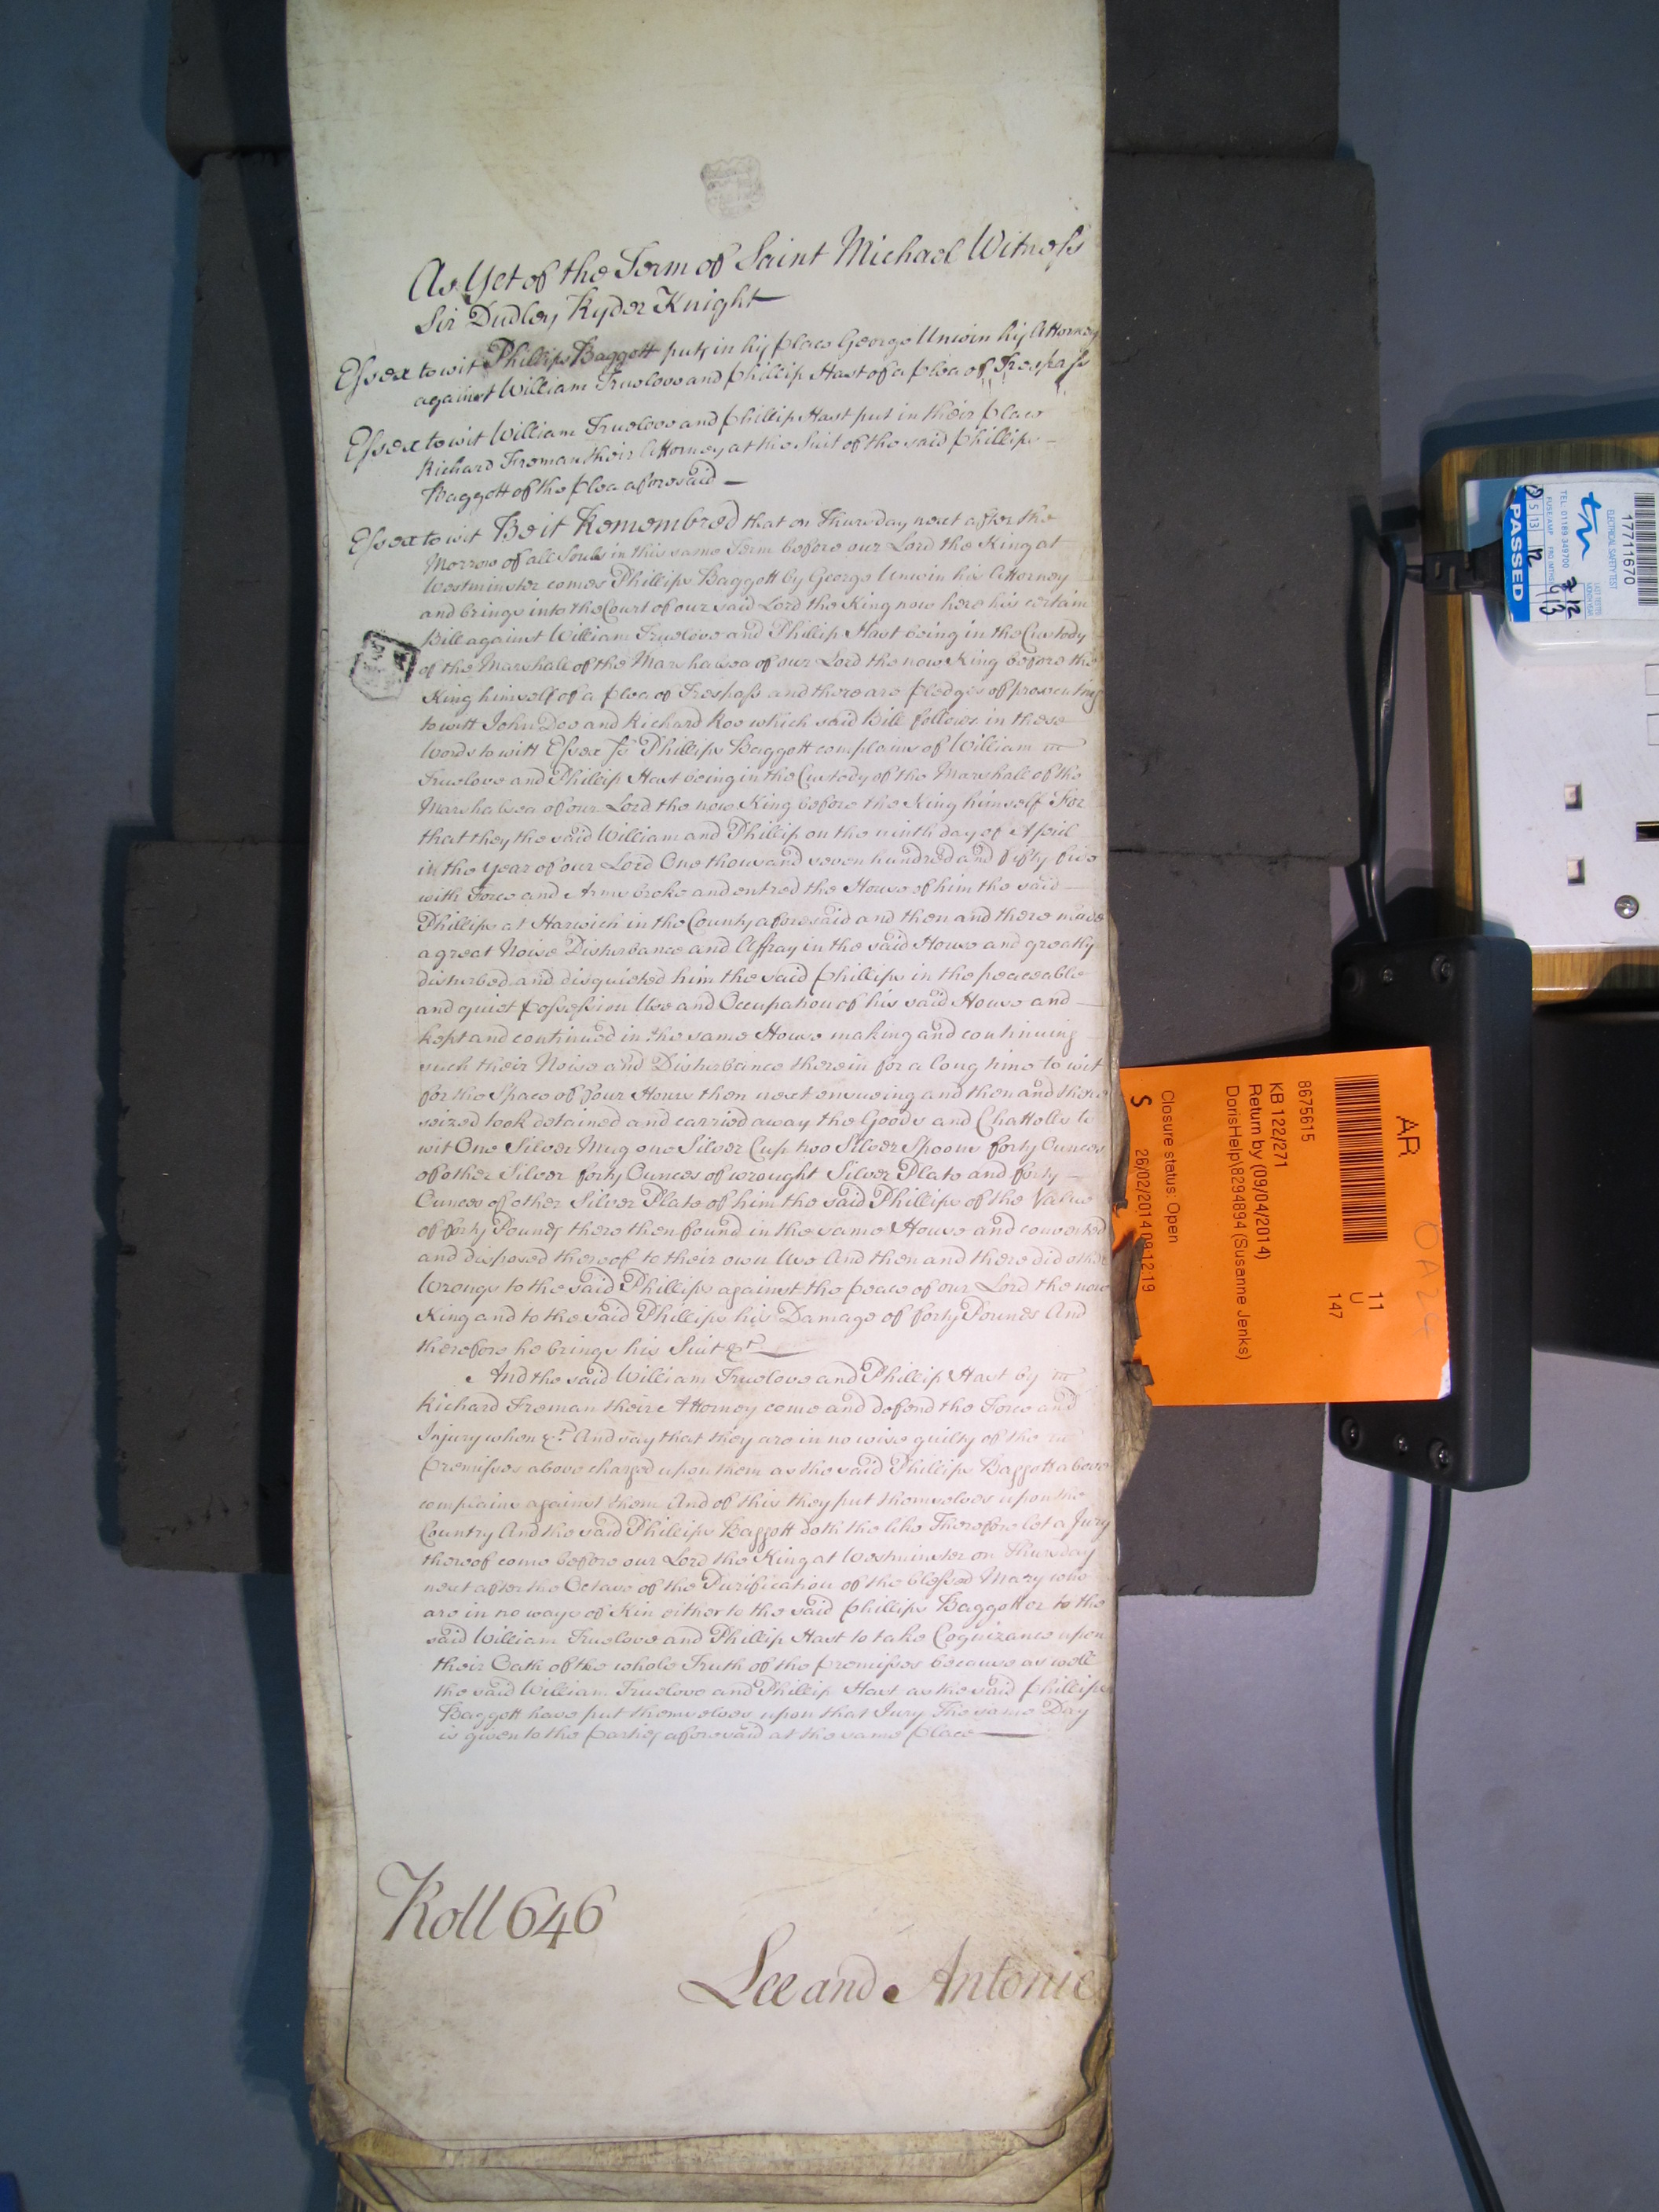 As Yet of the Term of Saint Michael Witness
Sir Dudley Ryder Knight
Essex to wit Phillips Baggott puts in his place George Unwin his Attorney
against William Truelove and Phillip Hast of a plea of Trespass
Essex to wit William Truelove and Phillip Hast put in their place
Richard Froman their Attorney at the Suit of the said Phillips
Baggott of the plea aforesaid
Essex to wit Be it Remembred that on Thursday next after the
Morrow of all Souls in this same Term before our Lord the King at
Westminster comes Phillips Baggott by George Unwin his Attorney
and brings into the Court of our said Lord the King now here his certain
Bill against William Truelove and Phillip Hast being in the Custody
of the Marshall of the Marshalsea of our Lord the now King before the
King himself of a plea of Trespass and there are pledges of prosecuting
to witt John Doe and Richard Roe which said Bill follows in these
Words to witt Essex ss Phillips Baggott complains of William
Truelove and Phillip Hast being in the Custody of the Marshall of the
Marshalsea of our Lord the now King before the King himself For
that they the said William and Phillip on the ninth day of April
in the Year of our Lord One thousand seven hundred and fifty five
with Force and Arms broke and entred the House of him the said
Phillips at Harwich in the County aforesaid and then and there made
a great Noise Disturbance and Affray in the said House and greatly
disturbed and disquieted him the said Phillips in the peaceable
and quiet possession Use and Occupation of his said House and
kept and continued in the same House making and continuing
such their Noise and Disturbance therein for a long time to wit
for the Space of four Hours then next ensueing and then and there
seized took detained and carried away the Goods and Chattells to
wit One Silver Mug one Silver Cup two Silver Spoons forty Ounces
of other Silver forty Ounces of wrought Silver Plate and forty
Ounces of other Silver Plate of him the said Phillips of the Value
of forty Pounds there then found in the same House and converted
and disposed thereof to their own Use And then and there did other
Wrongs to the said Phillips against the peace of our Lord the now
King and to the said Phillips his Damage of forty Pounds And
therefore he brings his Suit &c
And the said William Truelove and Phillip Hast by
Richard Froman their Attorney come and defend the Force and
Injury when &c And say that they are in no wise guilty of the
premisses above charged upon them as the said Phillips Baggott above
complains against them And of this they put themselves upon the
Country And the said Phillips Baggott doth the like Therefore let a Jury
thereof come before our Lord the King at Westminster on Thursday
next after the Octave of the Purification of the blessed Mary who
are in no ways of Kin either to the said Phillips Baggott or to the
said William Truelove and Phillip Hast to take Cognizance upon
their Oath of the whole Truth of the premisses because as well
the said William Truelove and Phillip Hast as the said Phillips
Baggott have put themselves upon that Jury The same Day
is given to the parties aforesaid at the same place
Roll 646
Lee and Antonie
AR
11
U
147
8675615
KB 122/271
Return by (09/04/2014)
DorisHelp\8294894 (Susanne Jenks)
Closure status: Open
S
26/02/2014 09:12:19
OA24
17711670
ELECTRICAL SAFETY TEST
TEL: 01189 349700
PASSED